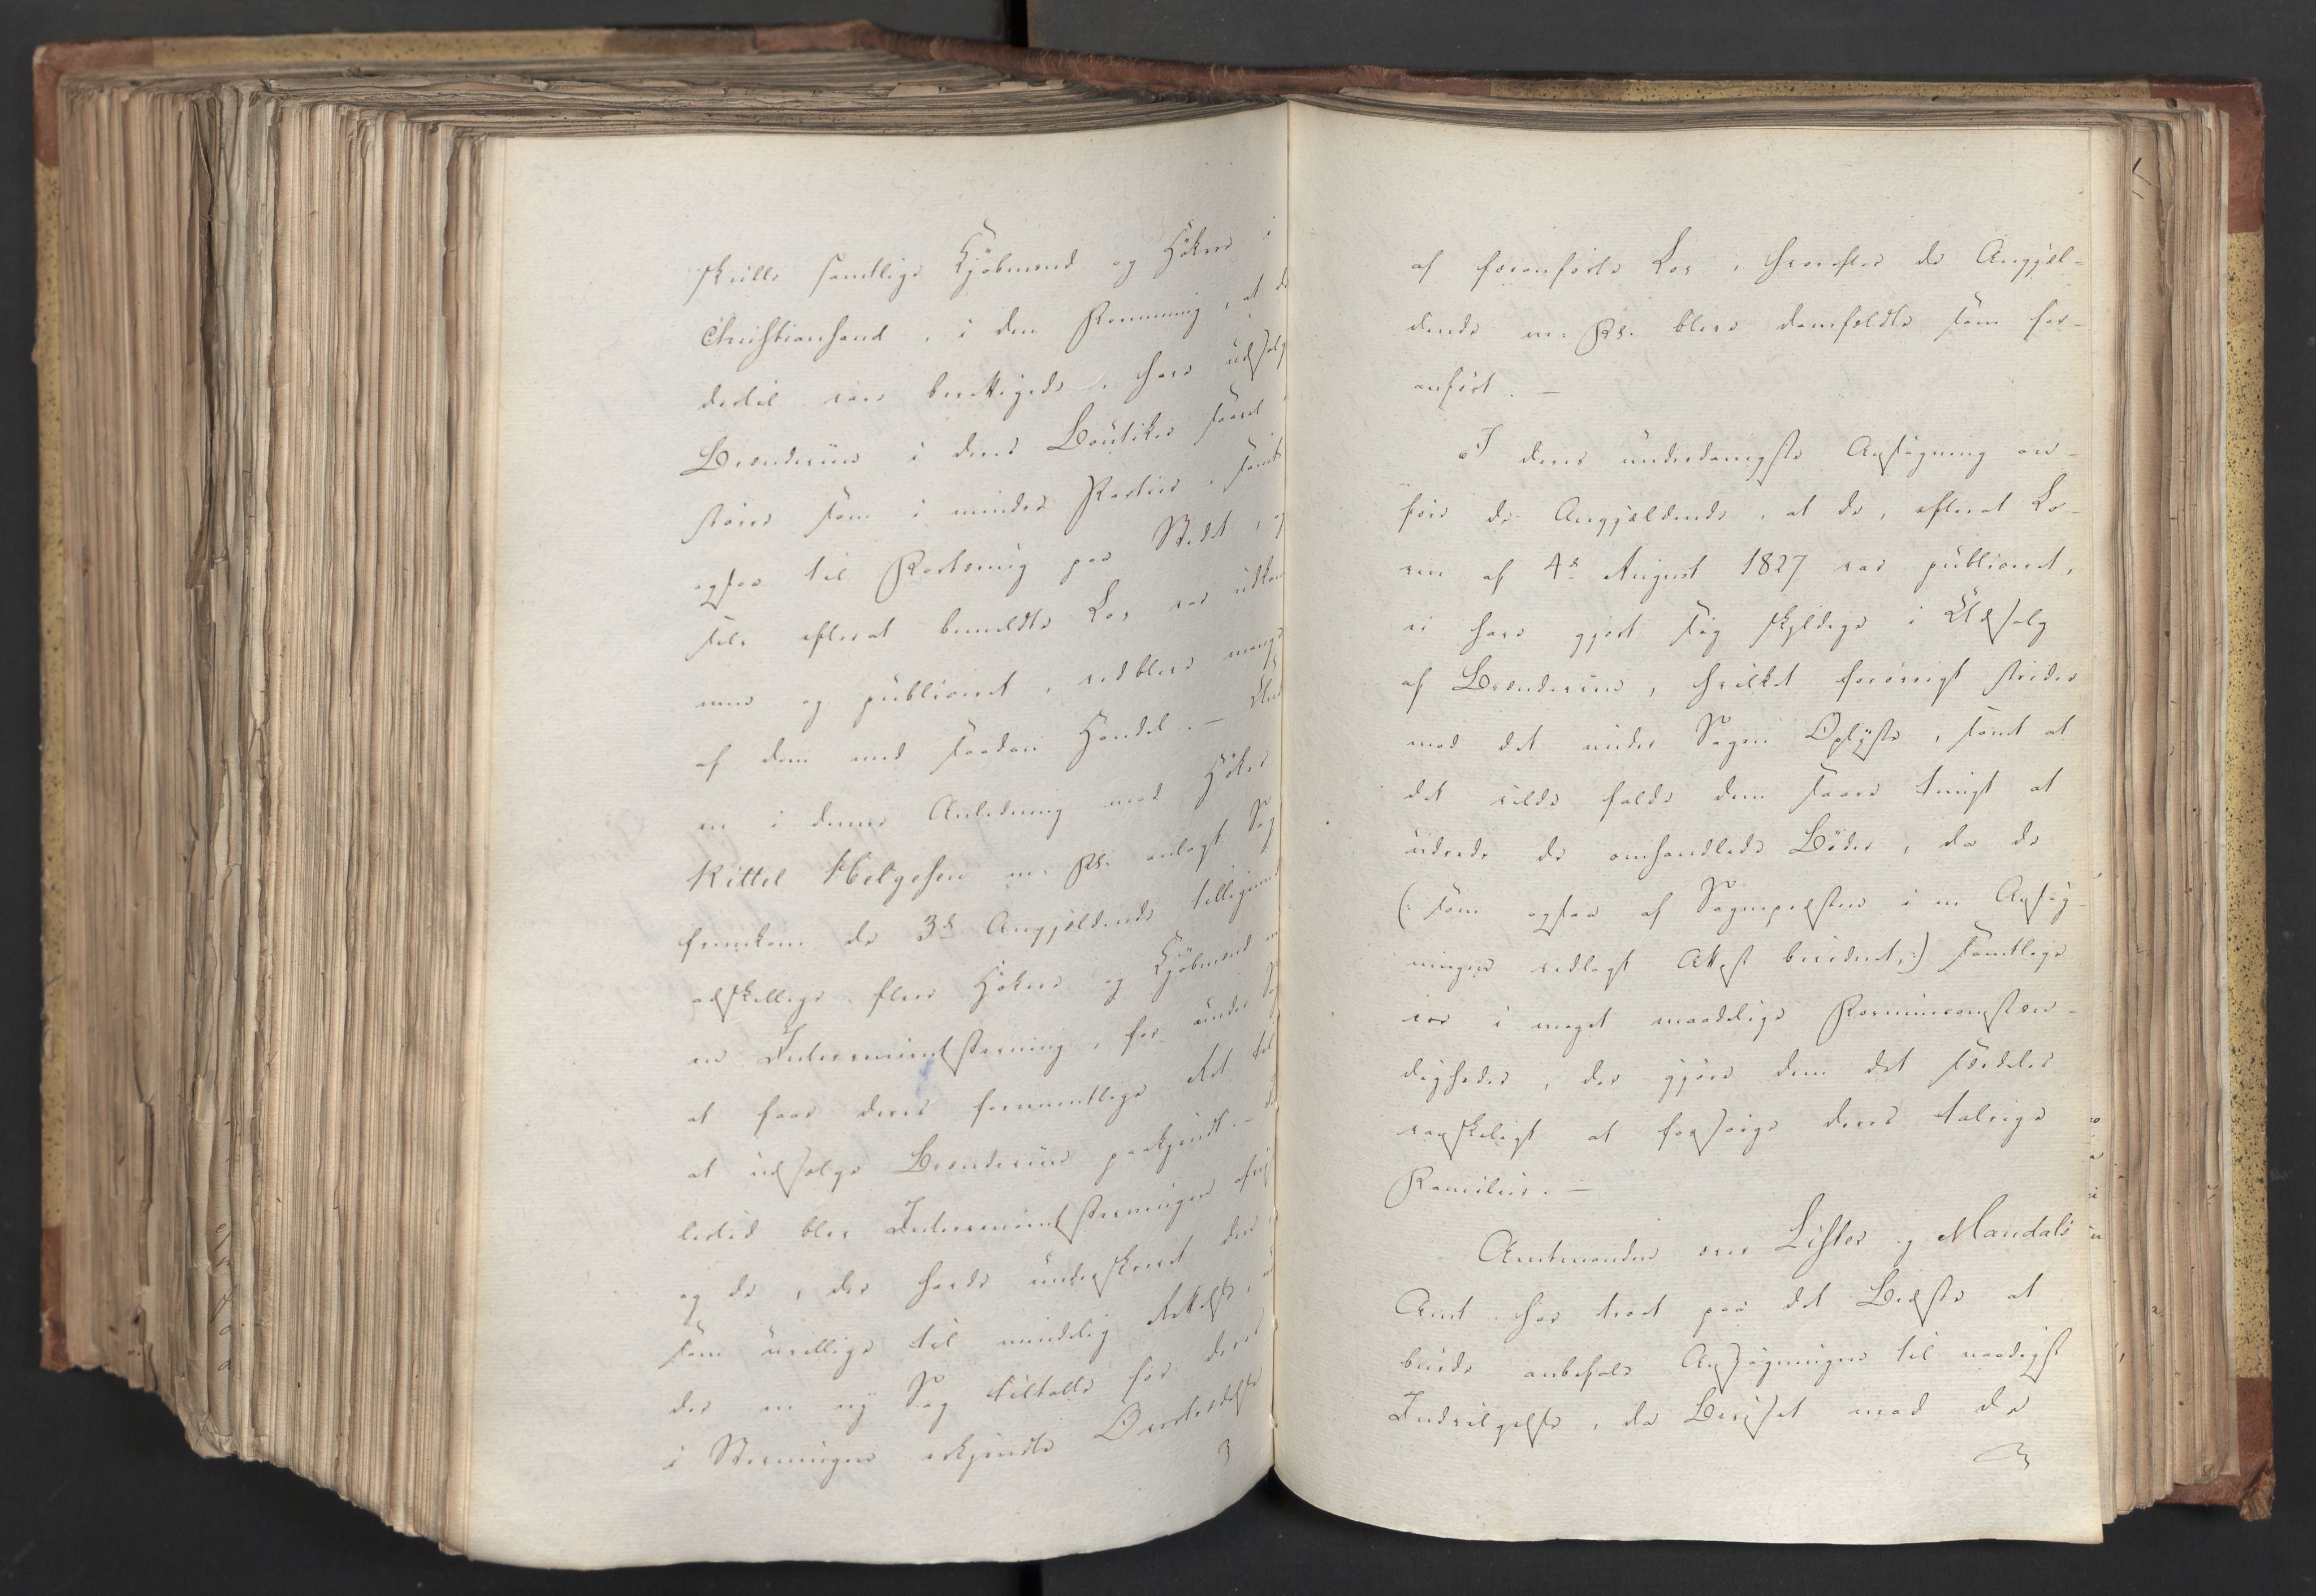 skille samtlige Kjöbmænd og Høkere i
Christiansand, i den Formening, at de
dertil vare berettigede, have udsolgt
Brændeviin i deres Boutiker saavel i
større som i mindre Partier, samt
ogsaa til Fortæring paa Stedet, og
selv efterat bemeldte Lov var udkom¬
men og publiceret, vedbleve mange
af dem med saadan Handel. —
en i denne Anledning mod Høker
Kittel Helgesen m: Fl: anlagt Sag
fremkom de 3de Angjældende tilligemed
adskillige flere Høkere og Kjöbmænd
en Interventionsstævning, for under
at faae deres formeentlige Ret til
at udsælge Brændeviin paakjendt. —
lertid blev Interventionsstævningen afviist
og de, der havde underskrevet den
som uvillige til mindelig Rettelse,
der en ny Sag tiltalte for deres
i Stævningen erkjendte Overtrædelse
af foranførte Lov, hvorefter de Angjæl-
dende m: Fl: bleve domfældte som for-
anført. —
I deres underdanigste Ansøgning an-
føre de Angjældende, at de, efterat Lo-
ven af 4de August 1827 var publiceret,
ei have gjort sig skyldige i Udsalg
af Brændeviin, hvilket forøvrigt strider
mod det under Sagen Oplyste, samt at
det vilde falde dem saare tungt at
udrede de omhandlede Bøder, da de
(: som ogsaa af Sognepresten i en Ansøg-
ningen vedlagt Attest bevidnet,:) samtlige
ere i meget maadelige Formuesomstæn-
digheder, der gjøre dem det særdeles
vanskeligt at forsørge deres talrige
Familier. —
Amtmanden over Lister og Mandals
Amt har troet paa det Bedste at
burde anbefale Ansøgningen til naadigst
Indvilgelse, da Beviset mod de